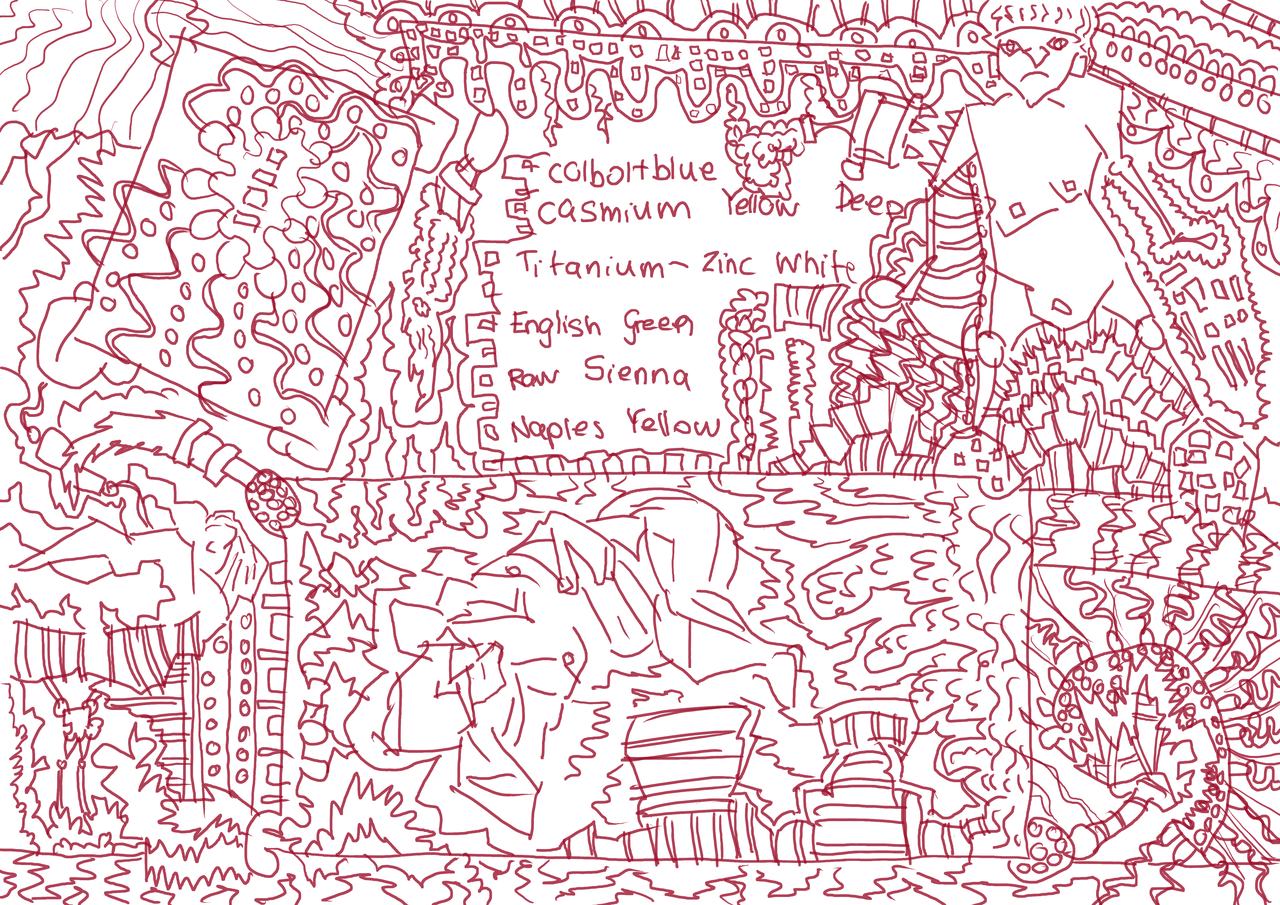 colboltblue
casmium Yellow Deep
Titanium- Zinc White
English Green
Raw Sienna
Naples Yellow